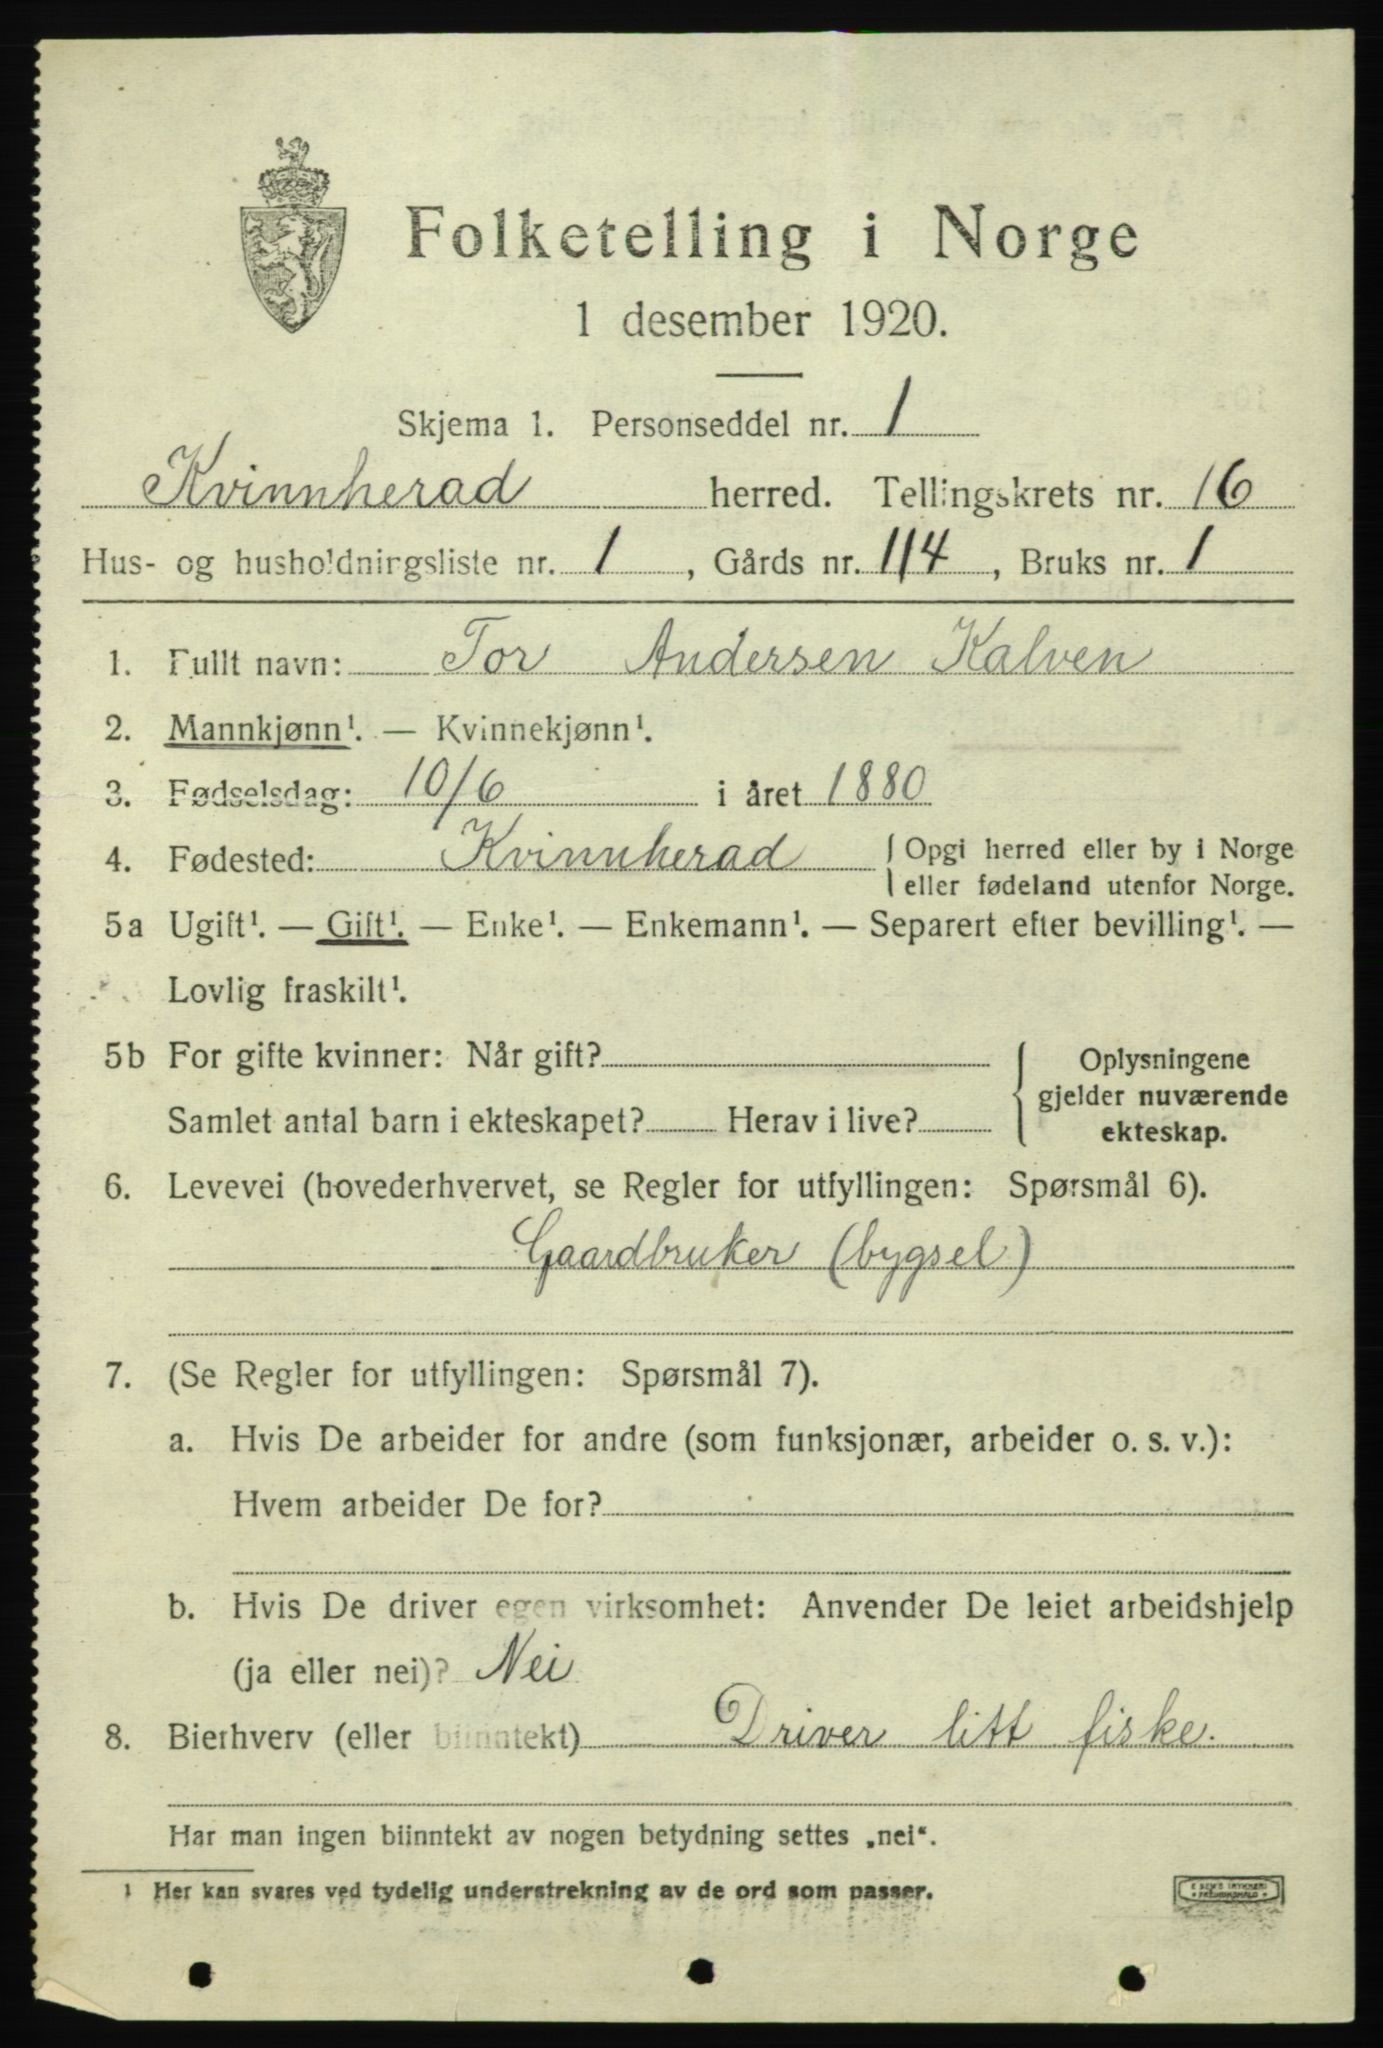 Folketelling i Norge
1 desember 1920.
Skjema 1. Personseddel nr. 1
Kvinnherad herred. Tellingskrets nr. 16
Hus- og husholdningsliste nr. 1, Gårds nr. 114, Bruks nr. 1
1. Fullt navn: Tor Andersen Kalven
2. Mannkjønn¹. — Kvinnekjønn¹.
3. Fødselsdag: 10/6 i året 1880
4. Fødested: Kvinnherad { Opgi herred eller by i Norge
eller fødeland utenfor Norge.
5a Ugift¹. — Gift¹. — Enke¹. — Enkemann¹. — Separert efter bevilling¹. —
Lovlig fraskilt¹.
5b For gifte kvinner: Når gift?
Samlet antal barn i ekteskapet? Herav i live?
{ Oplysningene
gjelder nuværende
ekteskap.
6. Levevei (hovederhvervet, se Regler for utfyllingen: Spørsmål 6).
Gaardbruker (bygsel)
7. (Se Regler for utfyllingen: Spørsmål 7).
a. Hvis De arbeider for andre (som funksjonær, arbeider o. s. v.):
Hvem arbeider De for?
b. Hvis De driver egen virksomhet: Anvender De leiet arbeidshjelp
(ja eller nei)? Nei
8. Bierhverv (eller biinntekt) Driver litt fiske.
Har man ingen biinntekt av nogen betydning settes „nei“.
¹ Her kan svares ved tydelig understrekning av de ord som passer.